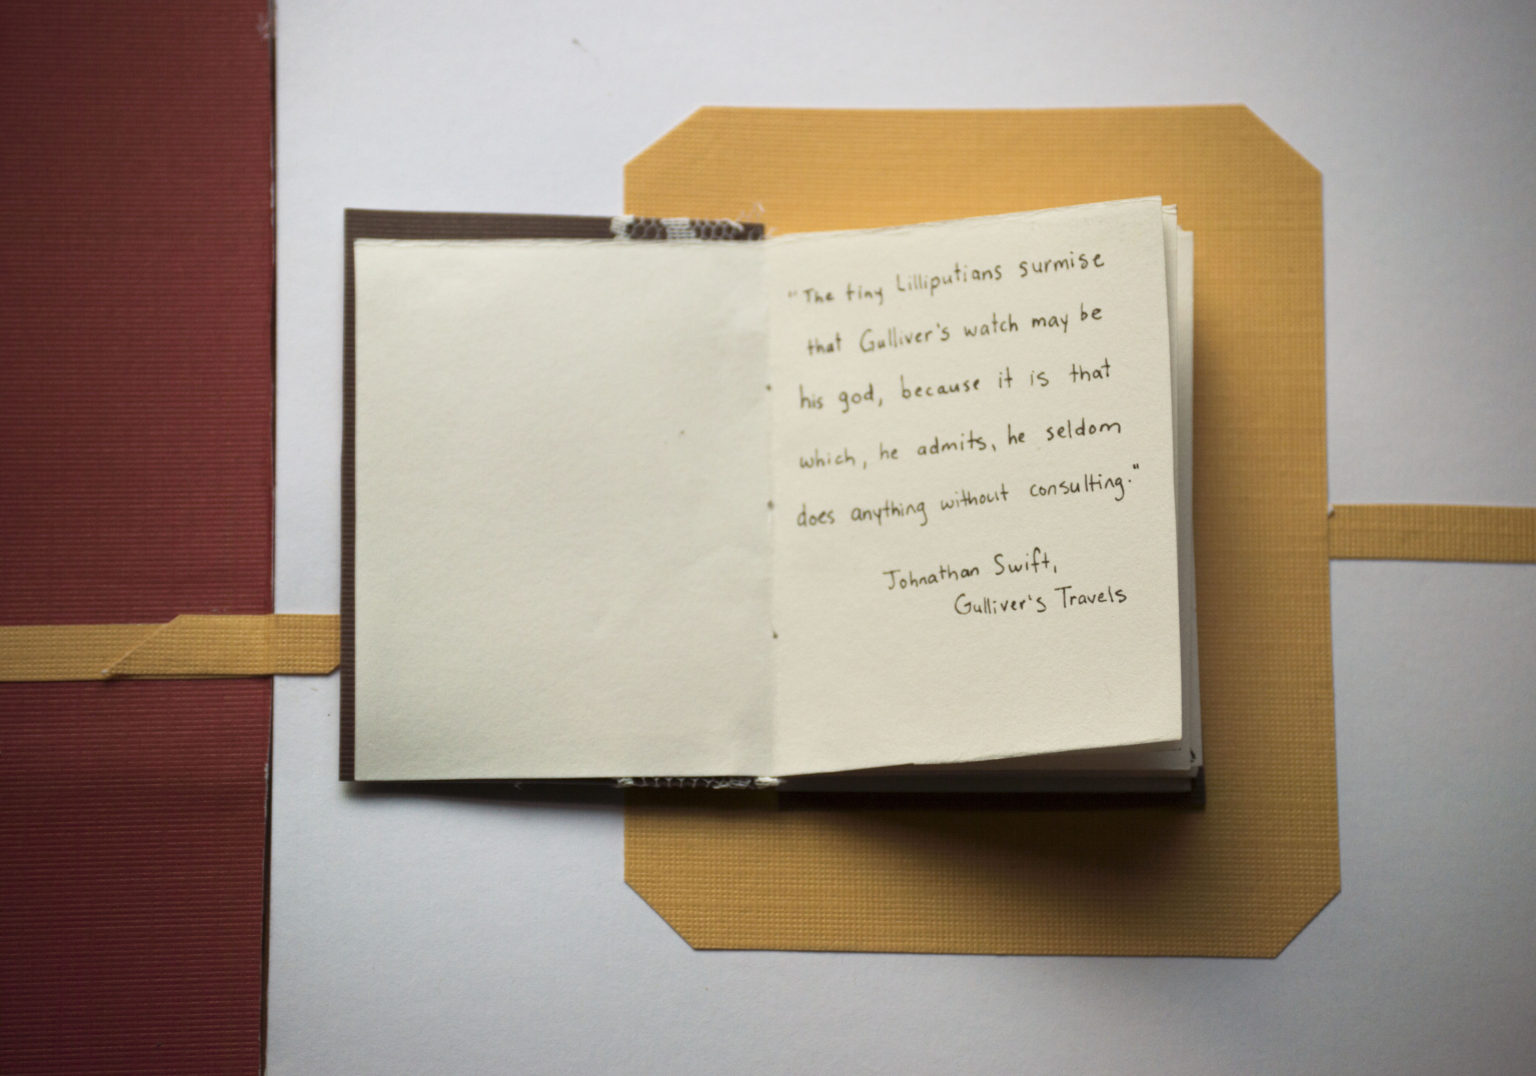 "The tiny Lilliputians surmise
that Gulliver's watch may be
his god, because it is that
which, he admits, he seldom
does anything without consulting."
Johnathan Swift,
Gulliver's Travels